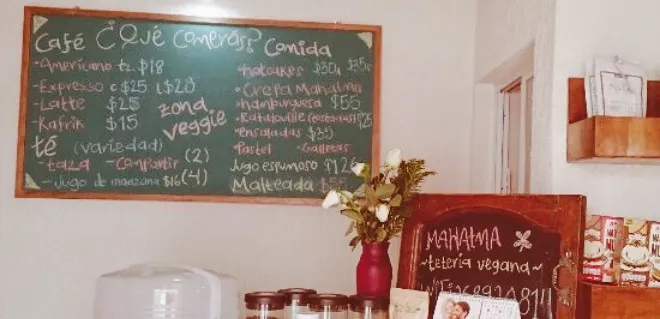 Café ¿Qué Comerás? Comida
• Americano tz. $18
• Expresso c $25 L $28
- Latte $25
- Kafrik $15
té (variedad) (2)
- taza - Compartir
- Jugo de manzana $16 (4)
zona
veggie
• hotcakes $30
• Crepa Mahatma
• hamburguesa $55
• Ratatouille
• ensaladas $35
• Pastel - Galletas
Jugo espumoso
Malteada
MAHATMA
~ tetería vegana ~